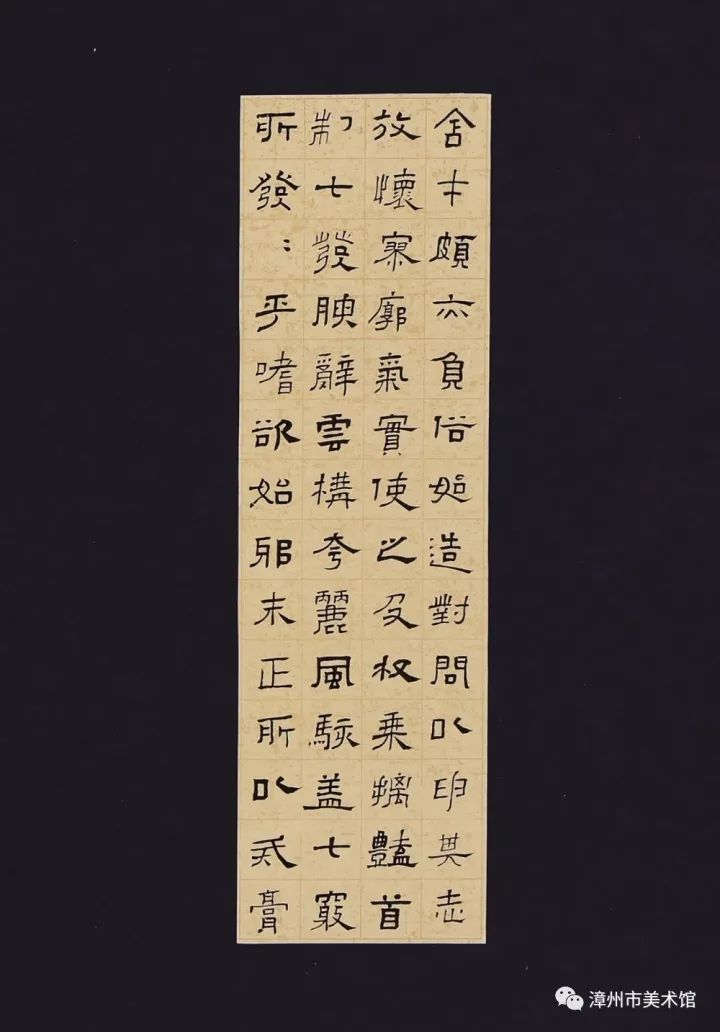 含才頗亦負俗始造對問以申其志
放懷寥廓氣實使之及枚乘摛豔首
制七發腴辭雲構夸麗風駭盖七竅
所發〻乎嗜欲始邪末正所以戒膏
漳州市美术馆